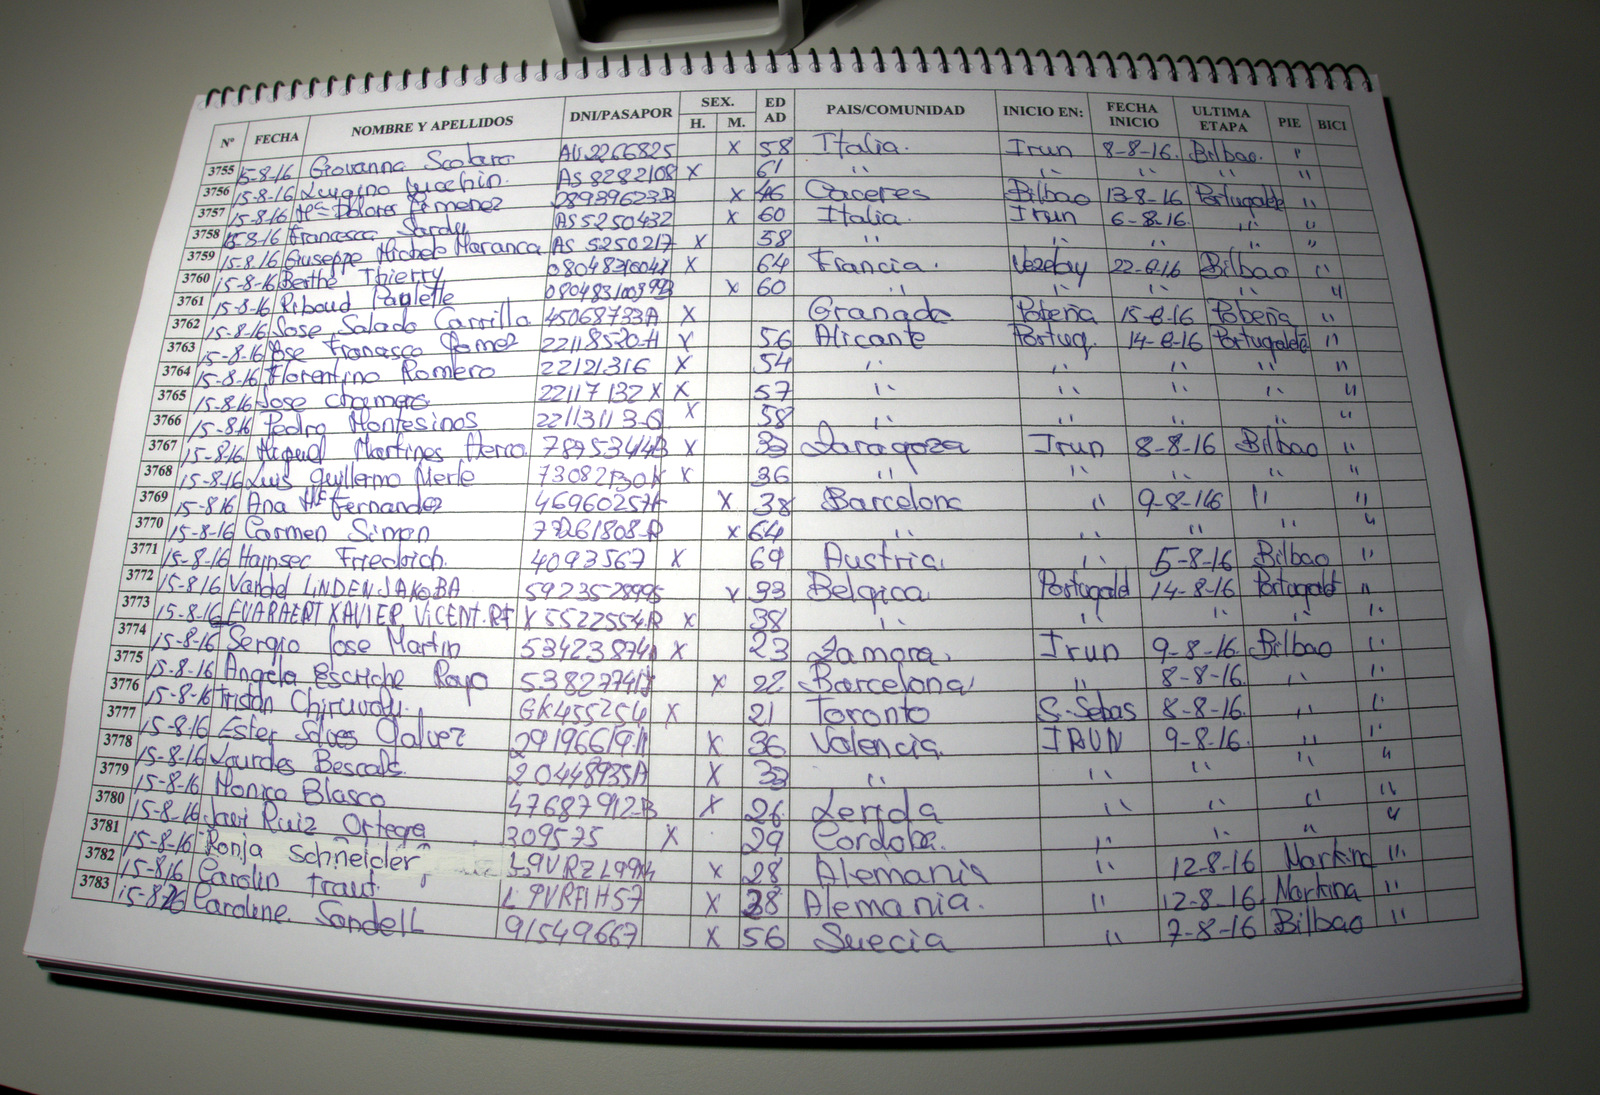 Nº FECHA NOMBRE Y APELLIDOS DNI/PASAPOR SEX. H. M. EDAD PAIS/COMUNIDAD INICIO EN: FECHA INICIO ULTIMA ETAPA PIE BICI
3755 15-8-16 Giovanna AU2266825 x 58 Italia. Irun 8-8-16. Bilbao. "
3756 15-8-16 Luigino AS8282108 x 61 " " " " "
3757 15-8-16 Mª Dolores Jimenez 08939623B x 46 Caceres Bilbao 13-8-16 Portugalete "
3758 15-8-16 Francesca Sardu AS5250432 x 60 Italia. Irun 6-8-16. " "
3759 15-8-16 Giuseppe Michele Maranca AS 5250217 x 58 " " " " "
3760 15-8-16 Berthe Thierry x 64 Francia. Vezelay Bilbao "
3761 15-8-16 Ribaud Paulette x 60 " " " " "
3762 15-8-16 Jose Salado Carrillo 45068733A x Granada Pobeña 15-8-16 Pobeña "
3763 15-8-16 Jose Francisco Gomez 22118520-H x 56 Alicante Portug. 14-8-16 Portugalete "
3764 15-8-16 Florentino Romero 22121316 x 54 " " " " "
3765 15-8-16 Jose 22117132 X x 57 " " " " "
3766 15-8-16 Pedro Montesinos 22113113-Q x 58 " " " " "
3767 15-8-16 Miguel Martines 78753444B x 33 Zaragoza Irun 8-8-16 Bilbao "
3768 15-8-16 Luis Guillermo Merle 73082130K x 36 " " " " "
3769 15-8-16 Ana Mª Fernandez x 38 Barcelona " 9-8-16 " "
3770 15-8-16 Carmen Simon x 64 " " " " "
3771 15-8-16 Hainsec Friedrich. 4093567 x 69 Austria. " 5-8-16 Bilbao "
3772 15-8-16 Vandel LINDEN JAKOBA x 33 Belgica Portugald 14-8-16 Portugalt "
3773 15-8-16 EVARAERT XAVIER VICENT. x 38 " " " " "
3774 15-8-16 Sergio Jose Martin x 23 Zamora. Irun 9-8-16. Bilbao "
3775 15-8-16 Angela Escriche Rayo x 22 Barcelona " 8-8-16. " "
3776 15-8-16 Tristan GK455254 x 21 Toronto S.Sebas 8-8-16. " "
3777 15-8-16 Ester Solves Galvez x 36 Valencia IRUN 9-8-16. " "
3778 15-8-16 Lourdes 20448935A x 33 " " " " "
3779 15-8-16 Monica Blasco 47687912-B x 26 Lerida " " " "
3780 15-8-16 Javi Ruiz Ortega 309575 x 29 Cordoba. " " " "
3781 15-8-16 Ronja Schneider x 28 Alemania " 12-8-16 Markina "
3782 15-8-16 Carolin Traut. x 28 Alemania. " 12-8-16. Markina "
3783 15-8-16 Caroline Sandell 91549667 x 56 Suecia " 7-8-16 Bilbao "